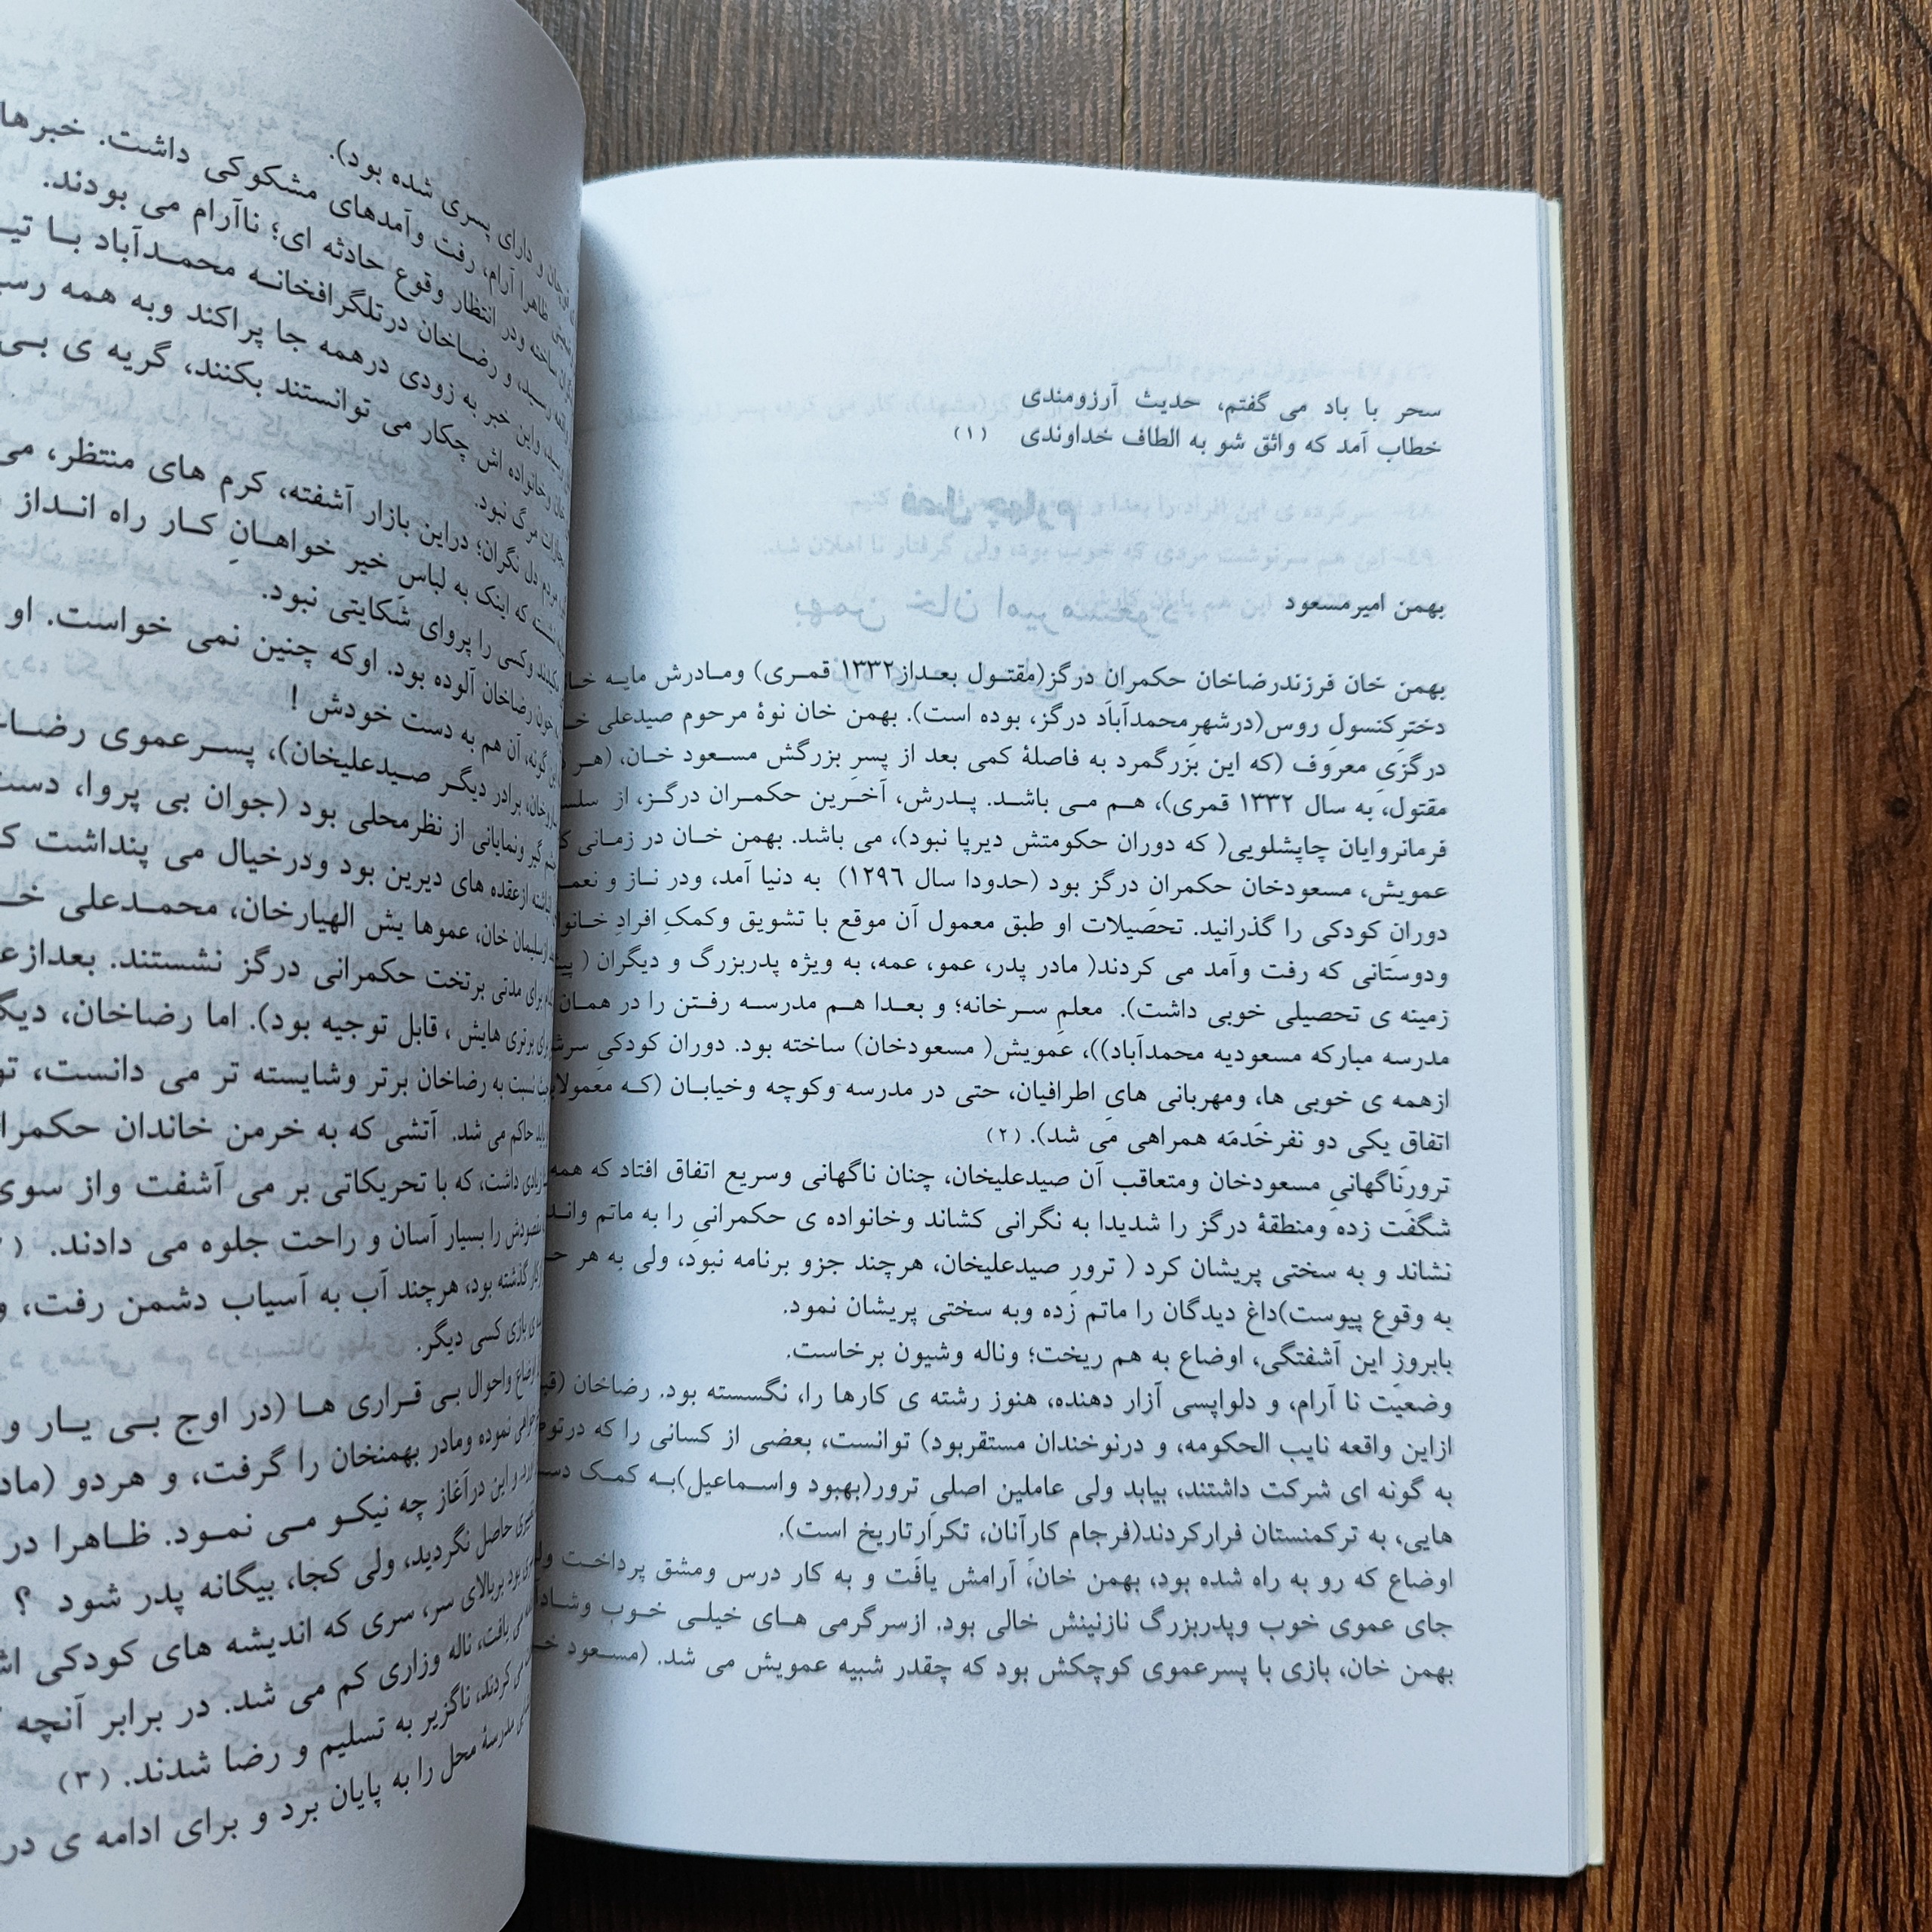 سحر با باد می گفتم، حدیث آرزومندی
خطاب آمد که واثق شو به الطاف خداوندی (۱)
بهمن امیرمسعود
بهمن خان فرزندرضاخان حکمران درگز(مقتول بعداز۱۳۳۲ قمری) ومادرش مایه
دخترکنسولِ روس(درشهرِمحمدآباد درگز، بوده است). بهمن خان نوۀ مرحوم صیدعلی
درگزیِ معروف (که این بزرگمرد به فاصلۀ کمی بعد از پسرِ بزرگش مسعود خان، (هر
مقتول، به سال ۱۳۳۲ قمری)، هم می باشد. پدرش، آخرین حکمران درگز، از
فرمانروایان چاپشلویی( که دوران حکومتش دیرپا نبود)، می باشد. بهمن خان در زمانی
عمویش، مسعودخان حکمرانِ درگز بود (حدودا سال ۱۲۹۶) به دنیا آمد، ودر ناز و
دورانِ کودکی را گذرانید. تحصیلات او طبق معمول آن موقع با تشویق وکمکِ افرادِ
ودوستانی که رفت وآمد می کردند( مادر پدر، عمو، عمه، به ویژه پدربزرگ و دیگران (
زمینه ی تحصیلی خوبی داشت). معلمِ سرخانه؛ و بعدا هم مدرسه رفتن را در همان
مدرسه مبارکه مسعودیه محمدآباد))، عمویش( مسعودخان) ساخته بود. دوران کودکیِ
ازهمه ی خوبی ها، ومهربانی هایِ اطرافیان، حتی در مدرسه وکوچه وخیابان (که معمولا
اتفاقِ یکی دو نفرخَدمَه همراهی می شد). (۲)
ترورِناگهانیِ مسعودخان ومتعاقب آن صیدعلیخان، چنان ناگهانی وسریع اتفاق افتاد که همه
شگفت زده ومنطقۀ درگز را شدیدا به نگرانی کشاند وخانواده ی حکمرانی را به ماتم
نشاند و به سختی پریشان کرد ( ترورِ صیدعلیخان، هرچند جزو برنامه نبود، ولی به هر
به وقوع پیوست)داغ دیدگان را ماتم زده وبه سختی پریشان نمود.
بابروزِ این آشفتگی، اوضاع به هم ریخت؛ وناله وشیون برخاست.
وضعیت نا آرام، و دلواپسی آزار دهنده، هنوز رشته ی کارها را، نگسسته بود. رضاخان
ازاین واقعه نایب الحکومه، و درنوخندان مستقربود) توانست، بعضی از کسانی را که
به گونه ای شرکت داشتند، بیابد ولی عاملین اصلیِ ترور(بهبود واسماعیل)به کمک
هایی، به ترکمنستان فرارکردند(فرجام کارآنان، تکرارتاریخ است).
اوضاع که رو به راه شده بود، بهمن خان، آرامش یافت و به کار درس ومشق پرداخت
جای عموی خوب وپدربزرگ نازنینش خالی بود. ازسرگرمی های خیلی خوب
بهمن خان، بازی با پسرعموی کوچکش بود که چقدر شبیه عمویش می شد. (مسعود
و دارای پسری شده بود).
ظاهرا آرام، رفت وآمدهای مشکوکی داشت. خبرها
ساخته ودر انتظار وقوع حادثه ای؛ ناآرام می بودند.
رسید، و رضاخان درتلگرافخانه محمدآباد با
واین خبر به زودی درهمه جا پراکند وبه همه
وخانواده اش چکار می توانستند بکنند، گریه ی
مرگ نبود.
مردم دل نگران؛ دراین بازار آشفته، کرم های منتظر،
که اینک به لباسِ خیر خواهانِ کار راه انداز
وکسی را پروای شکایتی نبود.
خون رضاخان آلوده بود. اوکه چنین نمی خواست. او
گونه، آن هم به دست خودش !
برادر دیگر صیدعلیخان)، پسرعموی
گیر ونمایانی از نظرمحلی بود (جوان بی پروا،
ازعقده های دیرین بود ودرخیال می پنداشت
سلیمان خان، عموها یش الهیارخان، محمدعلی
برای مدتی برتخت حکمرانی درگز نشستند.
برتری هایش ، قابل توجیه بود). اما رضاخان،
نسبت به رضاخان برتر وشایسته تر می دانست،
حاکم می شد. آتشی که به خرمن خاندان
داشت، که با تحریکاتی بر می آشفت واز سوی
را بسیار آسان و راحت جلوه می دادند.
گذشته بود، هرچند آب به آسیاب دشمن رفت،
بازی کسی دیگر.
اوضاع واحوال بی قراری ها (در اوج بی یار و
نموده ومادر بهمنخان را گرفت، و هردو
و این درآغاز چه نیکو می نمود. ظاهرا در
حاصل نگردید، ولی کجا، بیگانه پدر شود ؟
بود بربالای سر، سری که اندیشه های کودکی
یافت، ناله وزاری کم می شد. در برابر آنچه
کردند، ناگزیر به تسلیم و رضا شدند. (۳)
مدرسۀ محل را به پایان برد و برای ادامه ی